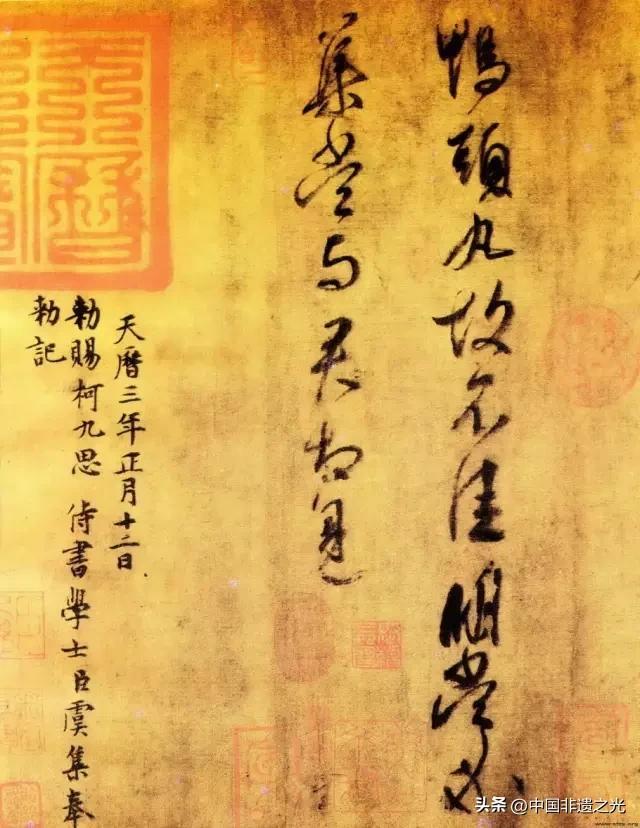 鴨頭丸故不佳明當必
集當与君相見
天曆三年正月十二日
勅賜柯九思 侍書學士臣虞集奉
勅記
头条 @中国非遗之光